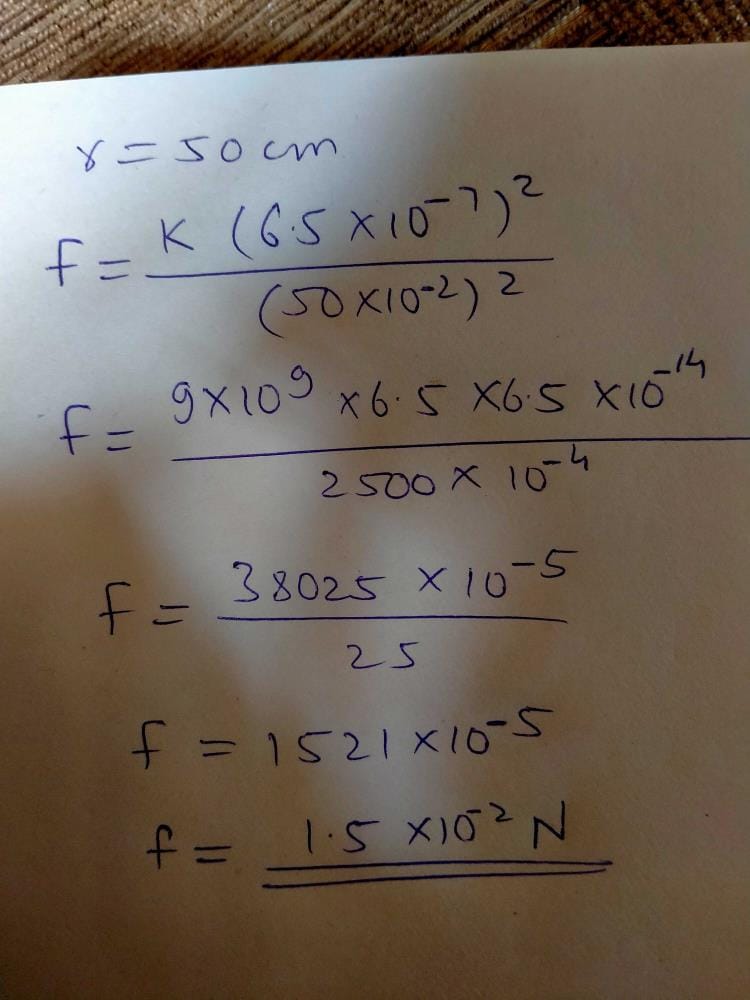 r = 50 cm
f = K (6.5 × 10⁻⁷)² / (50 × 10⁻²)²
f = 9 × 10⁹ × 6.5 × 6.5 × 10⁻¹⁴ / 2500 × 10⁻⁴
f = 38025 × 10⁻⁵ / 25
f = 1521 × 10⁻⁵
f = 1.5 × 10⁻² N